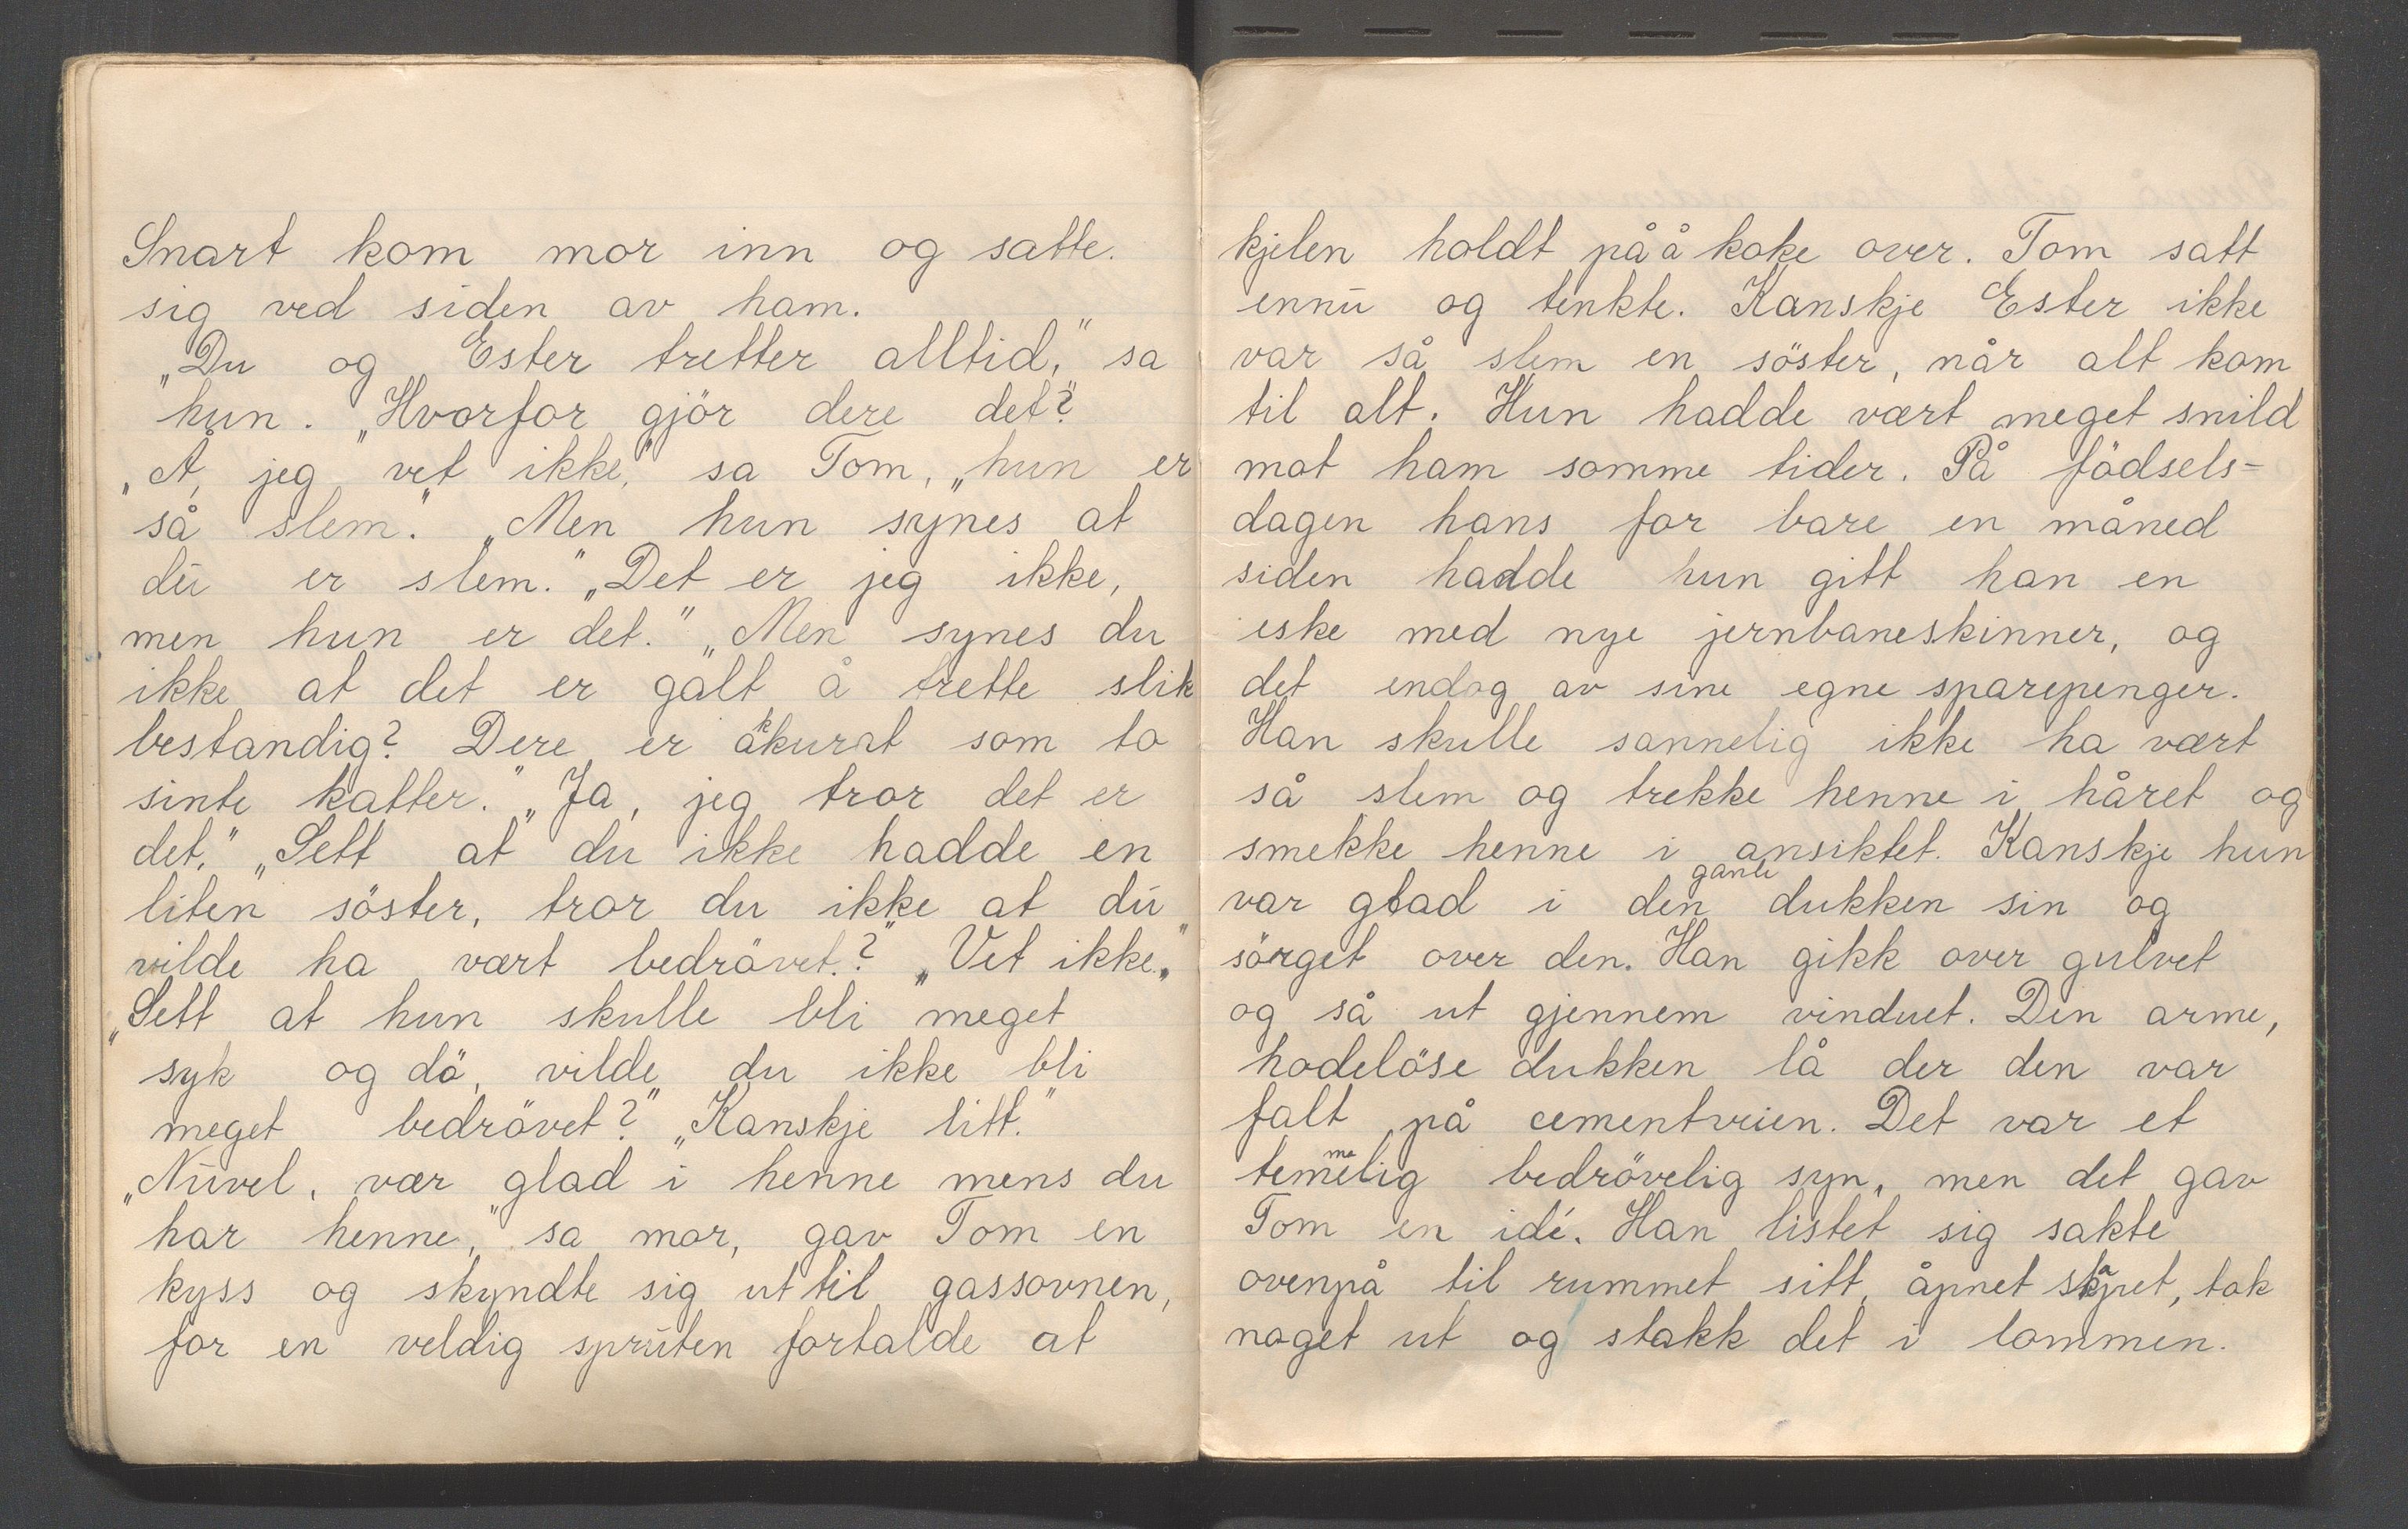 Snart kom mor inn og satte.
sig ved siden av ham.
„Du og Ester tretter alltid," sa
hun. „Hvorfor gjör dere det?"
„Å, jeg vet ikke," sa Tom, „hun er
så slem." „Men hun synes at
dū er slem." „Det er jeg ikke,
men hun er det." „Men synes du
ikke at det er galt å trette slik
bestandig? Dere er akkurat som to
sinte katter." „Ja, jeg tror det er
det." „Sett at du ikke hadde en
liten söster, tror du ikke at dū
vilde ha vært bedrövet.?" „Vet ikke."
„Sett at hun skulle bli meget
syk og dö, vilde du ikke bli
meget bedrövet?" „Kanskje litt."
„Nūvel, vær glad i henne mens du
har henne," sa mor, gav Tom en
kyss og skyndte sig ut til gassovnen,
for en veldig sprūten fortalde at
kjelen holdt på å koke over. Tom satt
ennū og tenkte. Kanskje Ester ikke
var så slem en söster, når alt kom
til alt. Hun hadde vært meget snild
mot ham somme tider. På födsels=
dagen hans for bare en måned
siden hadde hun gitt han en
eske med nye jernbaneskinner, og
det endog av sine egne sparepenger.
Han skulle sannelig ikke ha vært
så slem og trekke henne i håret og
smekke henne i ansiktet. Kanskje hun
var glad i den gamle dukken sin og
sörget over den. Han gikk over gulvet
og så ut gjennem vinduet. Den arme,
hodelöse dukken lå der den var
falt på cementveien. Det var et
temmelig bedrövelig syn, men det gav
Tom en idé. Han listet sig sakte
ovenpå til rummet sitt, åpnet skapet, tok
noget ut og stakk det i lommen.